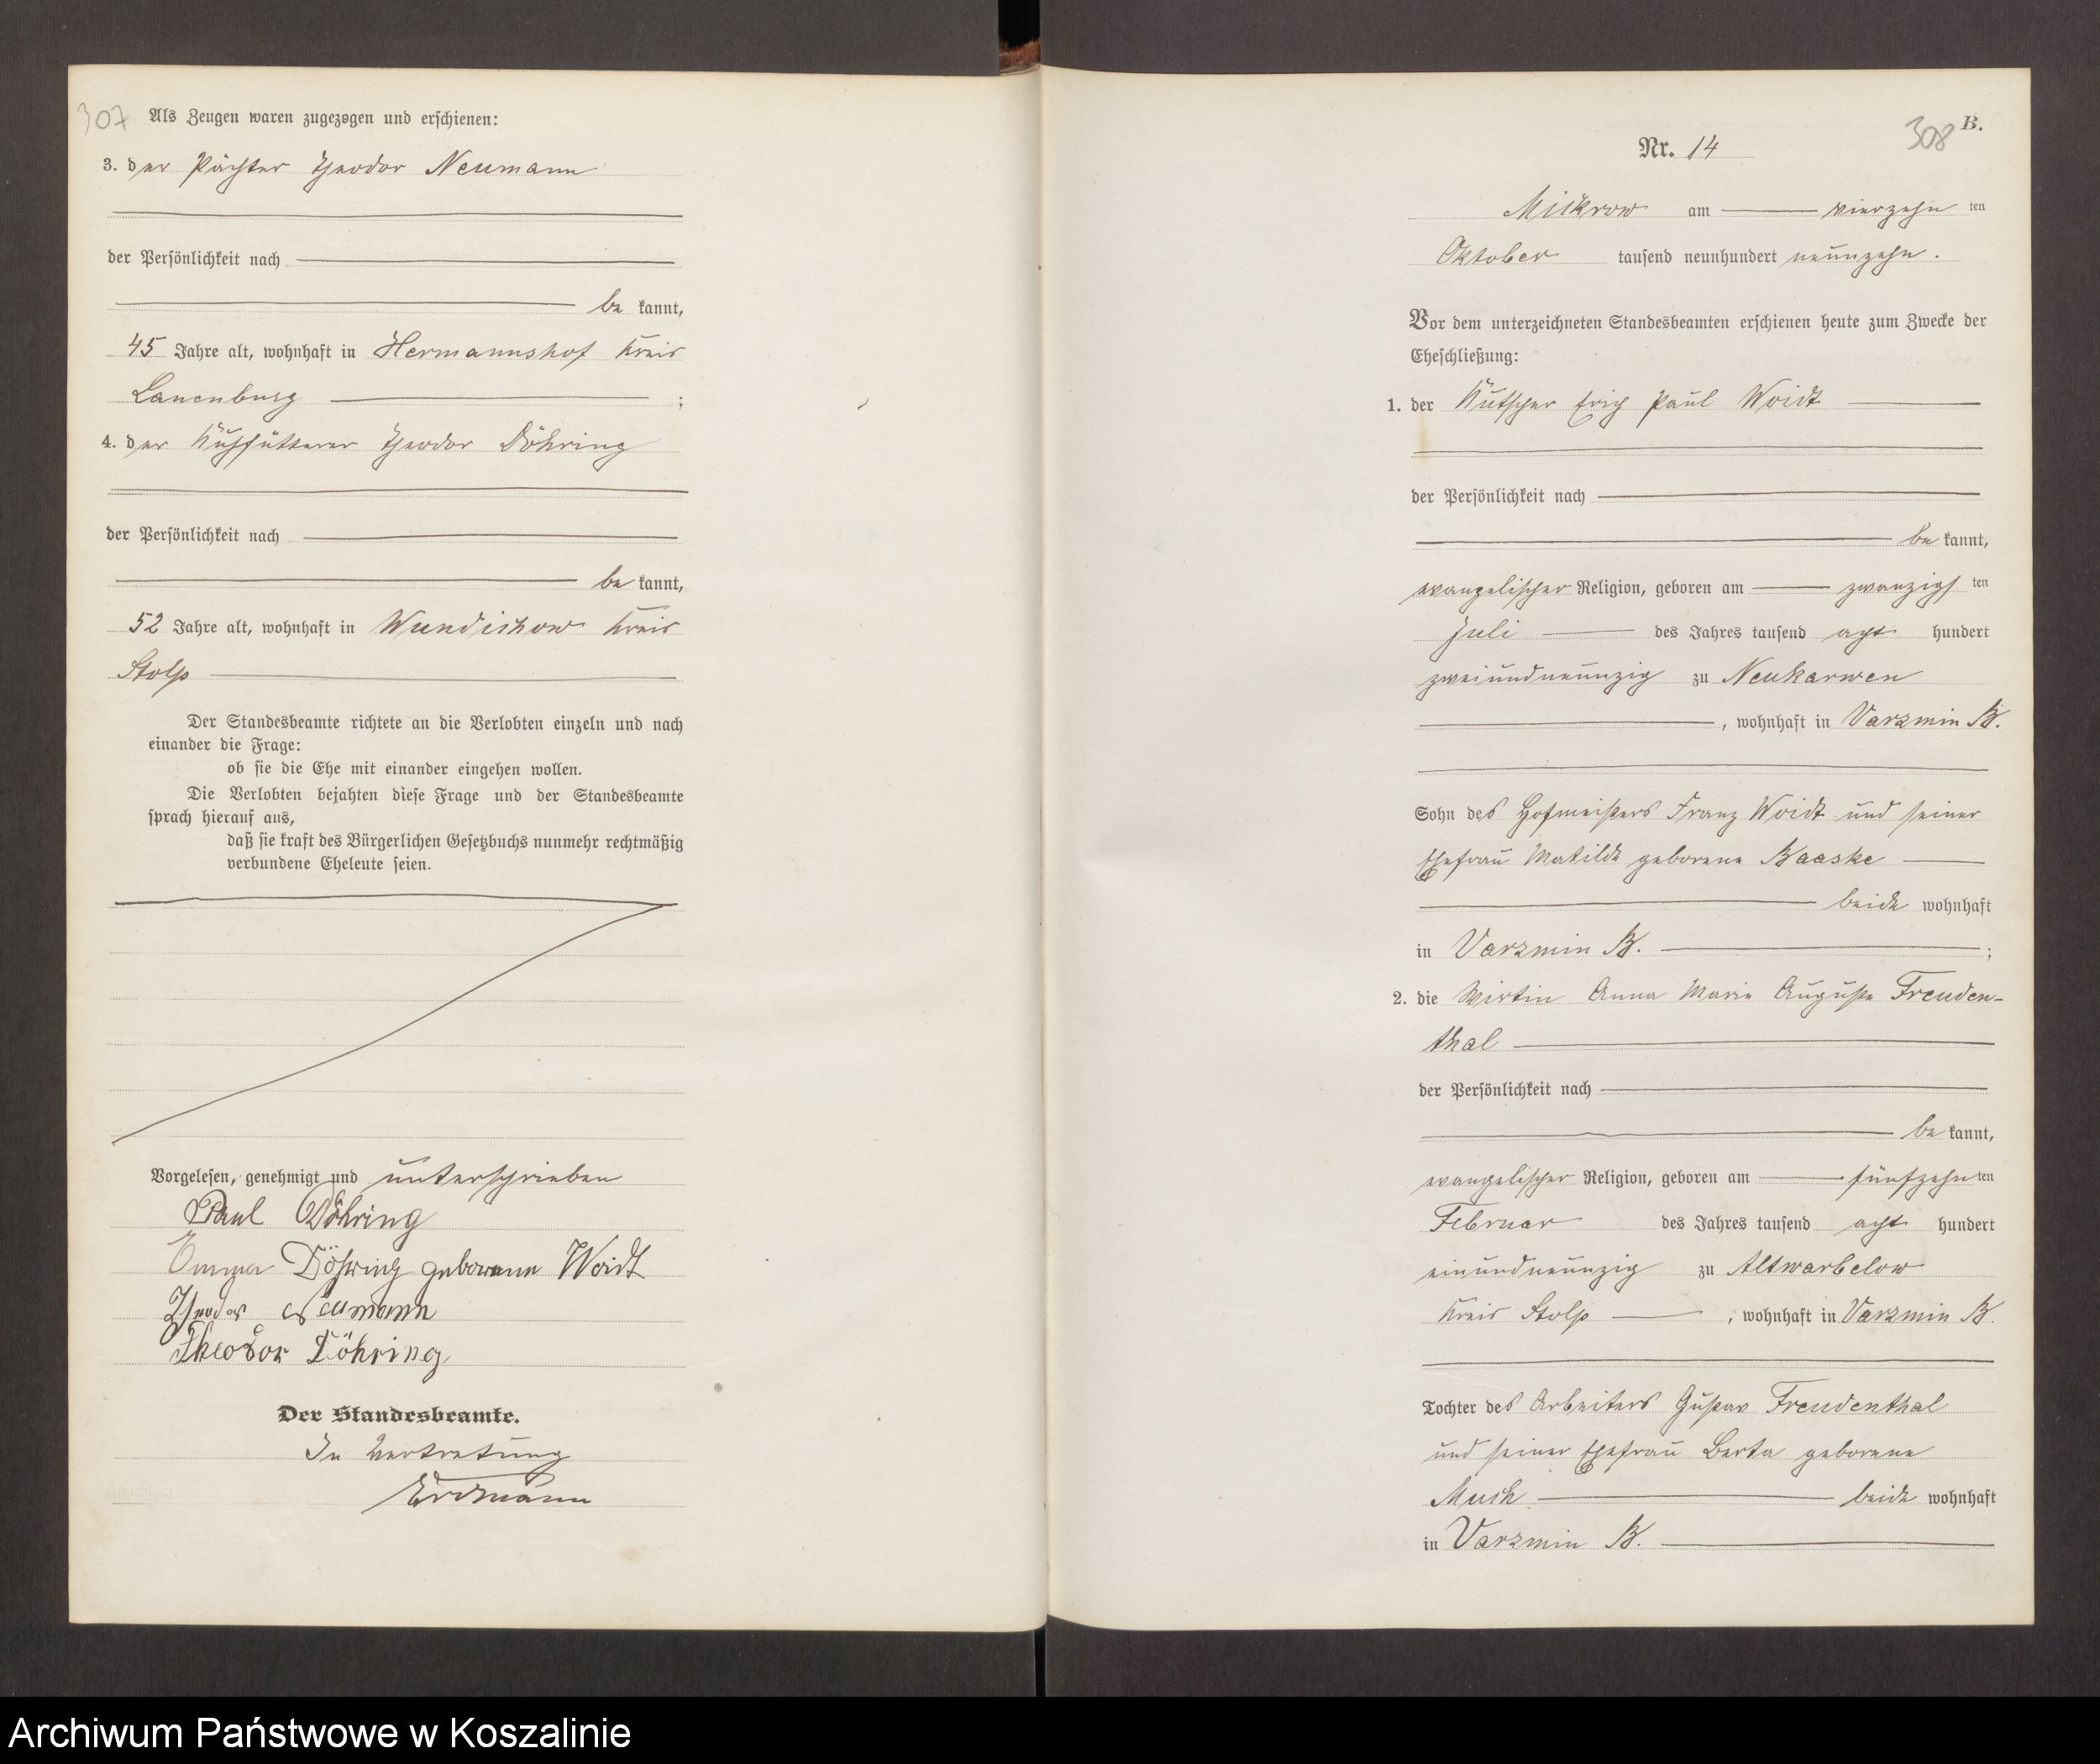 307
Als Zeugen waren zugezogen und erschienen:
3. der Pächter Theodor Neumann
der Persönlichkeit nach
be kannt,
45 Jahre alt, wohnhaft in Hermannshof Kreis
Lauenburg ;
4. der Kuhfütterer Theodor Döhring
der Persönlichkeit nach
be kannt,
52 Jahre alt, wohnhaft in Wundichow Kreis
Stolp
Der Standesbeamte richtete an die Verlobten einzeln und nach
einander die Frage:
ob sie die Ehe mit einander eingehen wollen.
Die Verlobten bejahten diese Frage und der Standesbeamte
sprach hierauf aus,
daß sie kraft des Bürgerlichen Gesetzbuchs nunmehr rechtmäßig
verbundene Eheleute seien.
Vorgelesen, genehmigt und unterschrieben
Paul Döhring
Emma Döhring geborene Woidt
Theodor Neumann
Theodor Döhring
Der Standesbeamte.
In Vertretung
Erdmann
308 B.
Nr. 14
Mickrow am vierzehn ten
Oktober tausend neunhundert neunzehn.
Vor dem unterzeichneten Standesbeamten erschienen heute zum Zwecke der
Eheschließung:
1. der Kutscher Erich Paul Woidt
der Persönlichkeit nach
be kannt,
evangelischer Religion, geboren am zwanzigs ten
Juli des Jahres tausend acht hundert
zweiundneunzig zu Neukarwen
, wohnhaft in Varzmin B.
Sohn des Hofmeisters Franz Woidt und seiner
Ehefrau Matilde geborene Baaske
beide wohnhaft
in Varzmin B. ;
2. die Wirtin Anna Marie Auguste Freuden-
thal
der Persönlichkeit nach
be kannt,
evangelischer Religion, geboren am fünfzehn ten
Februar des Jahres tausend acht hundert
einundneunzig zu Altwarbelow
Kreis Stolp , wohnhaft in Varzmin B.
Tochter des Arbeiters Gustav Freudenthal
und seiner Ehefrau Berta geborene
Much beide wohnhaft
in Varzmin B.
Archiwum Państwowe w Koszalinie